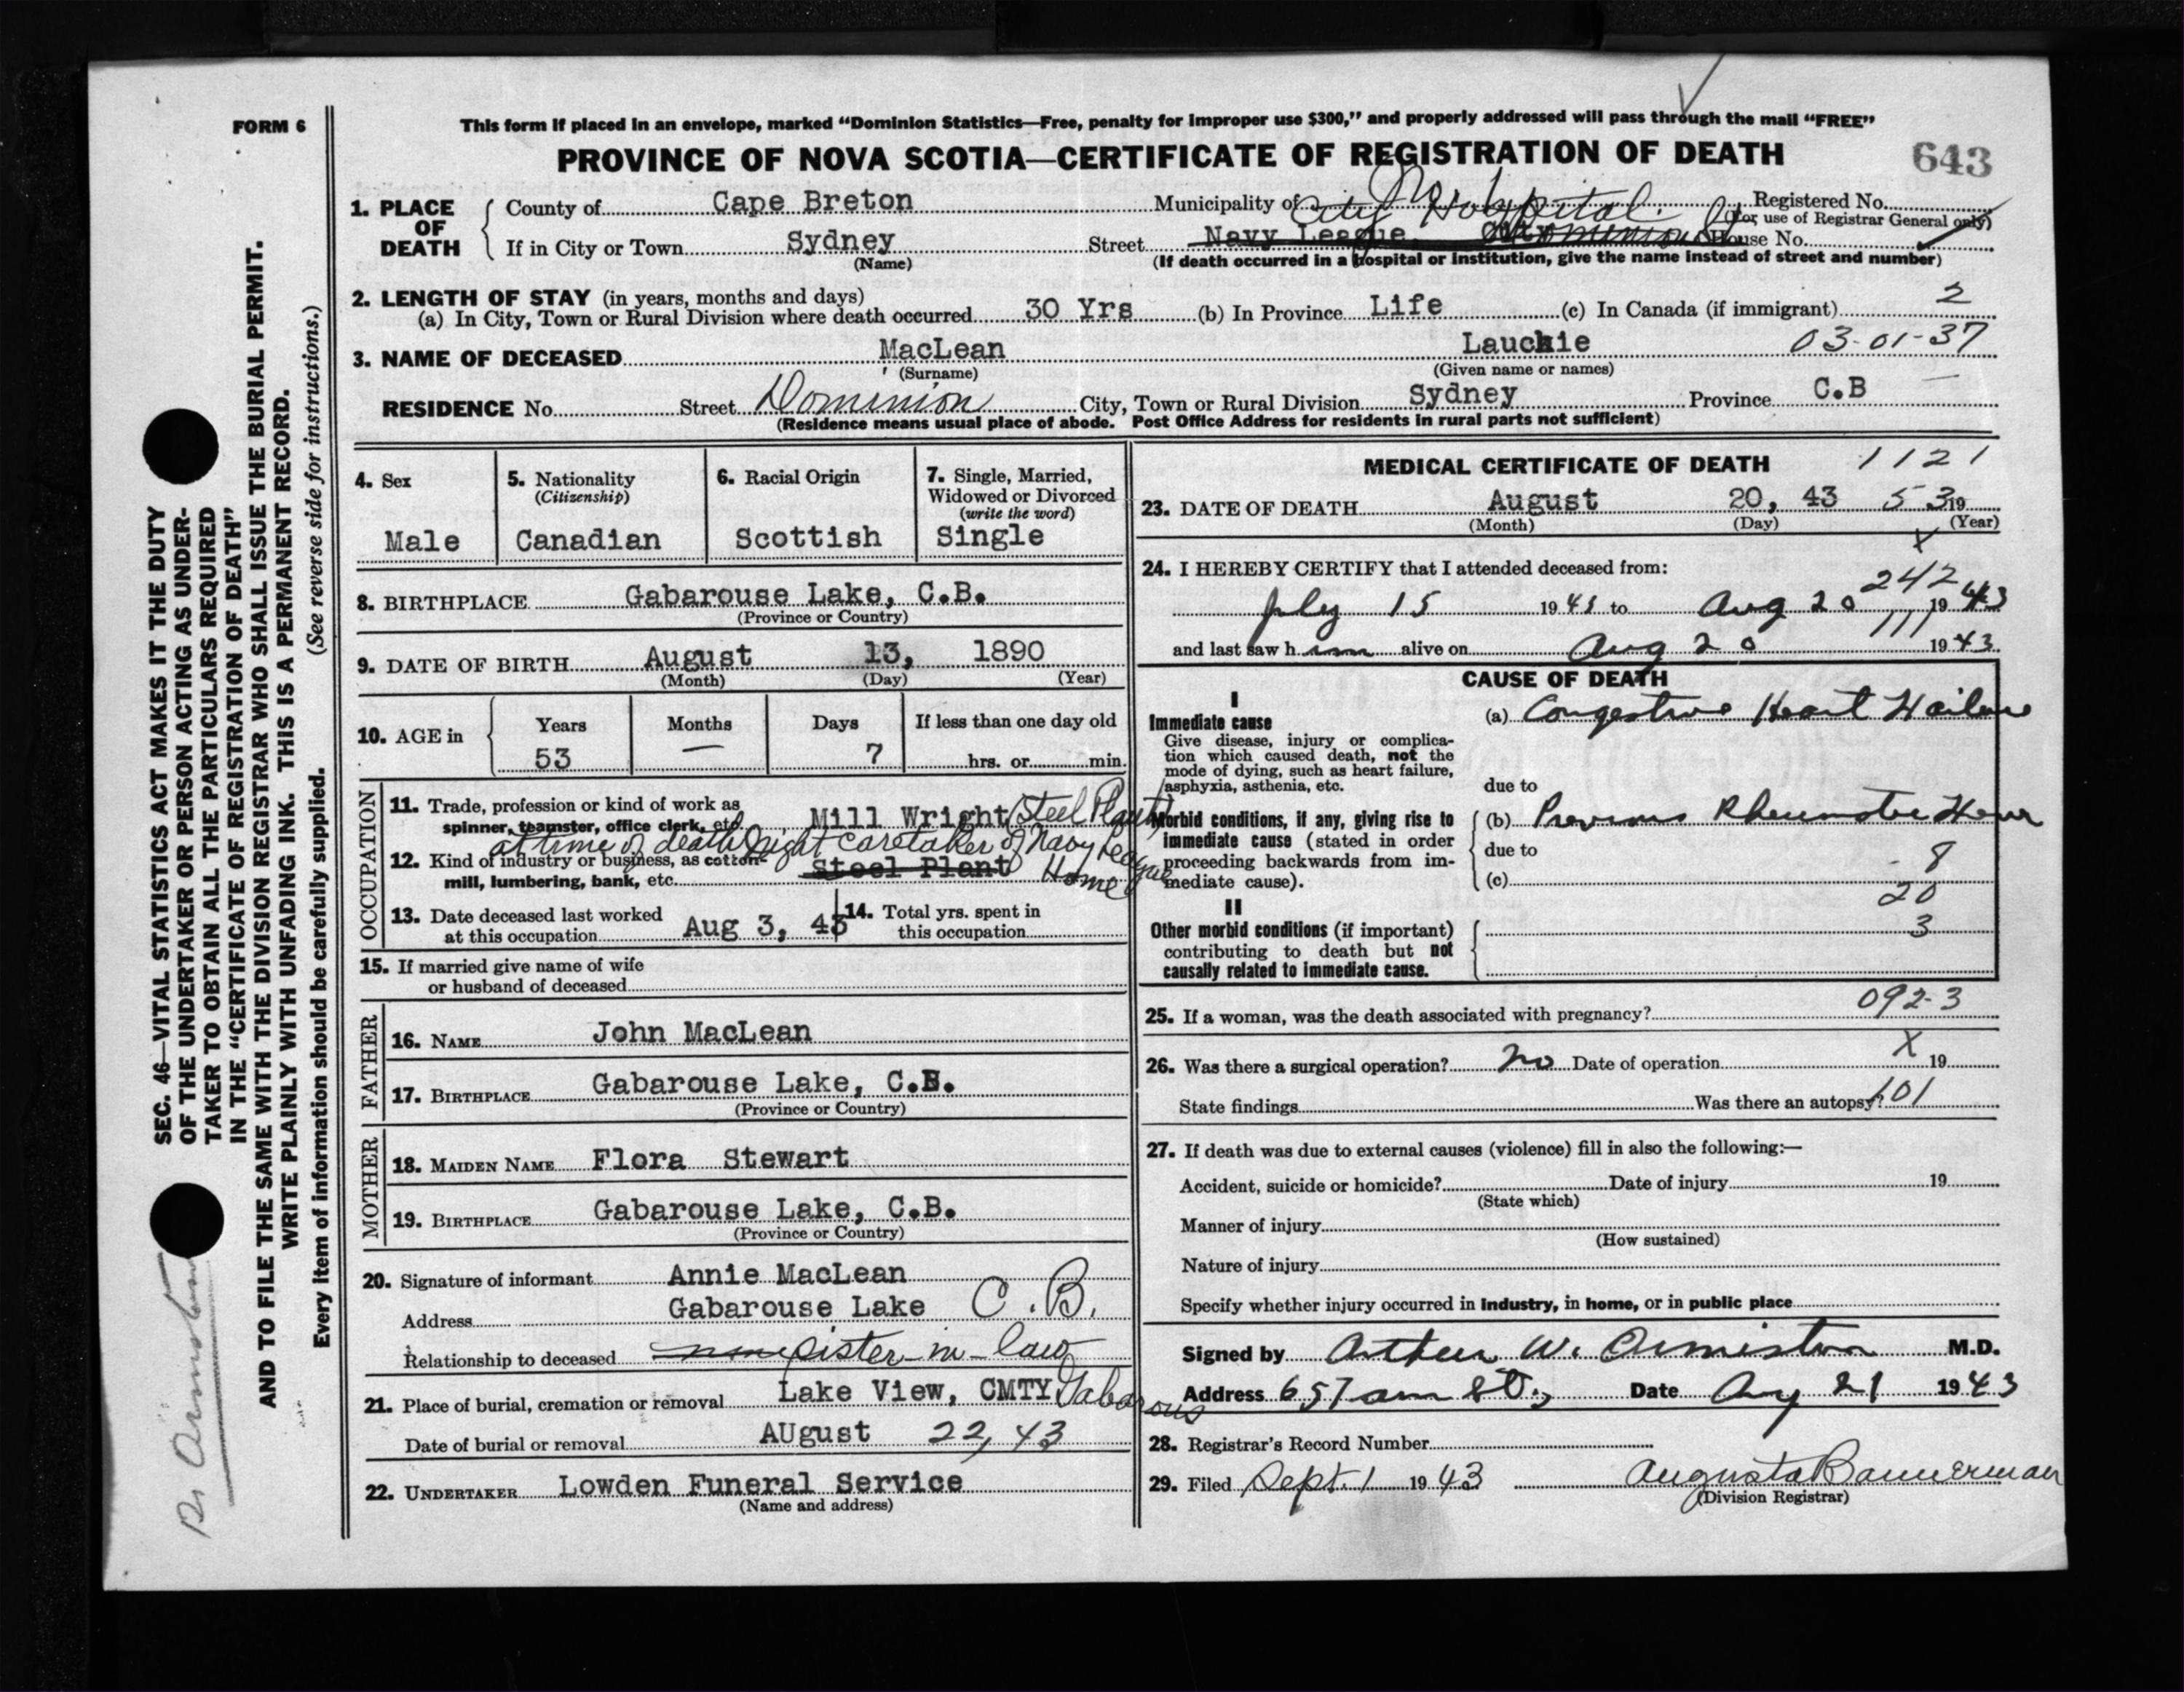 FORM 6
This form if placed in an envelope, marked “Dominion Statistics—Free, penalty for improper use $300,” and properly addressed will pass through the mail “FREE”
PROVINCE OF NOVA SCOTIA—CERTIFICATE OF REGISTRATION OF DEATH
643
1. PLACE OF DEATH
County of Cape Breton Municipality of Registered No.
(For use of Registrar General only)
City Hospital.
If in City or Town Sydney Street Navy League House No.
(Name)
(If death occurred in a hospital or institution, give the name instead of street and number)
2. LENGTH OF STAY (in years, months and days)
(a) In City, Town or Rural Division where death occurred 30 Yrs (b) In Province Life (c) In Canada (if immigrant) 2
3. NAME OF DECEASED MacLean Lauchie 03-01-37
(Surname) (Given name or names)
RESIDENCE No. Street Dominion City, Town or Rural Division Sydney Province C.B
(Residence means usual place of abode. Post Office Address for residents in rural parts not sufficient)
4. Sex
Male
5. Nationality
(Citizenship)
Canadian
6. Racial Origin
Scottish
7. Single, Married, Widowed or Divorced
(write the word)
Single
8. BIRTHPLACE Gabarouse Lake, C.B.
(Province or Country)
9. DATE OF BIRTH August 13, 1890
(Month) (Day) (Year)
10. AGE in
Years Months Days If less than one day old
53 — 7 hrs. or min.
OCCUPATION
11. Trade, profession or kind of work as
spinner, teamster, office clerk, etc. Mill Wright (Steel Plant)
at time of death Night Caretaker of Navy League Home
12. Kind of industry or business, as cotton
mill, lumbering, bank, etc. Steel Plant
13. Date deceased last worked
at this occupation Aug 3, 43
14. Total yrs. spent in
this occupation
15. If married give name of wife
or husband of deceased
FATHER
16. NAME John MacLean
17. BIRTHPLACE Gabarouse Lake, C.B.
(Province or Country)
MOTHER
18. MAIDEN NAME Flora Stewart
19. BIRTHPLACE Gabarouse Lake, C.B.
(Province or Country)
20. Signature of informant Annie MacLean
Address Gabarouse Lake C.B.
Relationship to deceased sister-in-law
21. Place of burial, cremation or removal Lake View, CMTY Gabarous
Date of burial or removal AUgust 22, 43
22. UNDERTAKER Lowden Funeral Service
(Name and address)
MEDICAL CERTIFICATE OF DEATH 1121
23. DATE OF DEATH August 20, 43 53 19
(Month) (Day) (Year)
x
24. I HEREBY CERTIFY that I attended deceased from:
242
July 15 1943 to Aug 20 1943
111
and last saw him alive on Aug 20 1943
CAUSE OF DEATH
I
Immediate cause
Give disease, injury or complica-
tion which caused death, not the
mode of dying, such as heart failure,
asphyxia, asthenia, etc.
(a) Congestive Heart Failure
due to
Morbid conditions, if any, giving rise to
immediate cause (stated in order
proceeding backwards from im-
mediate cause).
(b) Previous Rheumatic
due to
- 8
(c)
20
II
Other morbid conditions (if important)
contributing to death but not
causally related to immediate cause.
3
092-3
25. If a woman, was the death associated with pregnancy?
X
26. Was there a surgical operation? no Date of operation 19
State findings Was there an autopsy? 101
27. If death was due to external causes (violence) fill in also the following:—
Accident, suicide or homicide? Date of injury 19
(State which)
Manner of injury
(How sustained)
Nature of injury
Specify whether injury occurred in industry, in home, or in public place
Signed by Arthur W. Ormiston M.D.
Address Date Aug 21 1943
28. Registrar's Record Number
29. Filed Sept. 1 1943 Augusta Bannerman
(Division Registrar)
SEC. 46—VITAL STATISTICS ACT MAKES IT THE DUTY
OF THE UNDERTAKER OR PERSON ACTING AS UNDER-
TAKER TO OBTAIN ALL THE PARTICULARS REQUIRED
IN THE “CERTIFICATE OF REGISTRATION OF DEATH”
AND TO FILE THE SAME WITH THE DIVISION REGISTRAR WHO SHALL ISSUE THE BURIAL PERMIT.
WRITE PLAINLY WITH UNFADING INK. THIS IS A PERMANENT RECORD.
Every item of information should be carefully supplied. (See reverse side for instructions.)